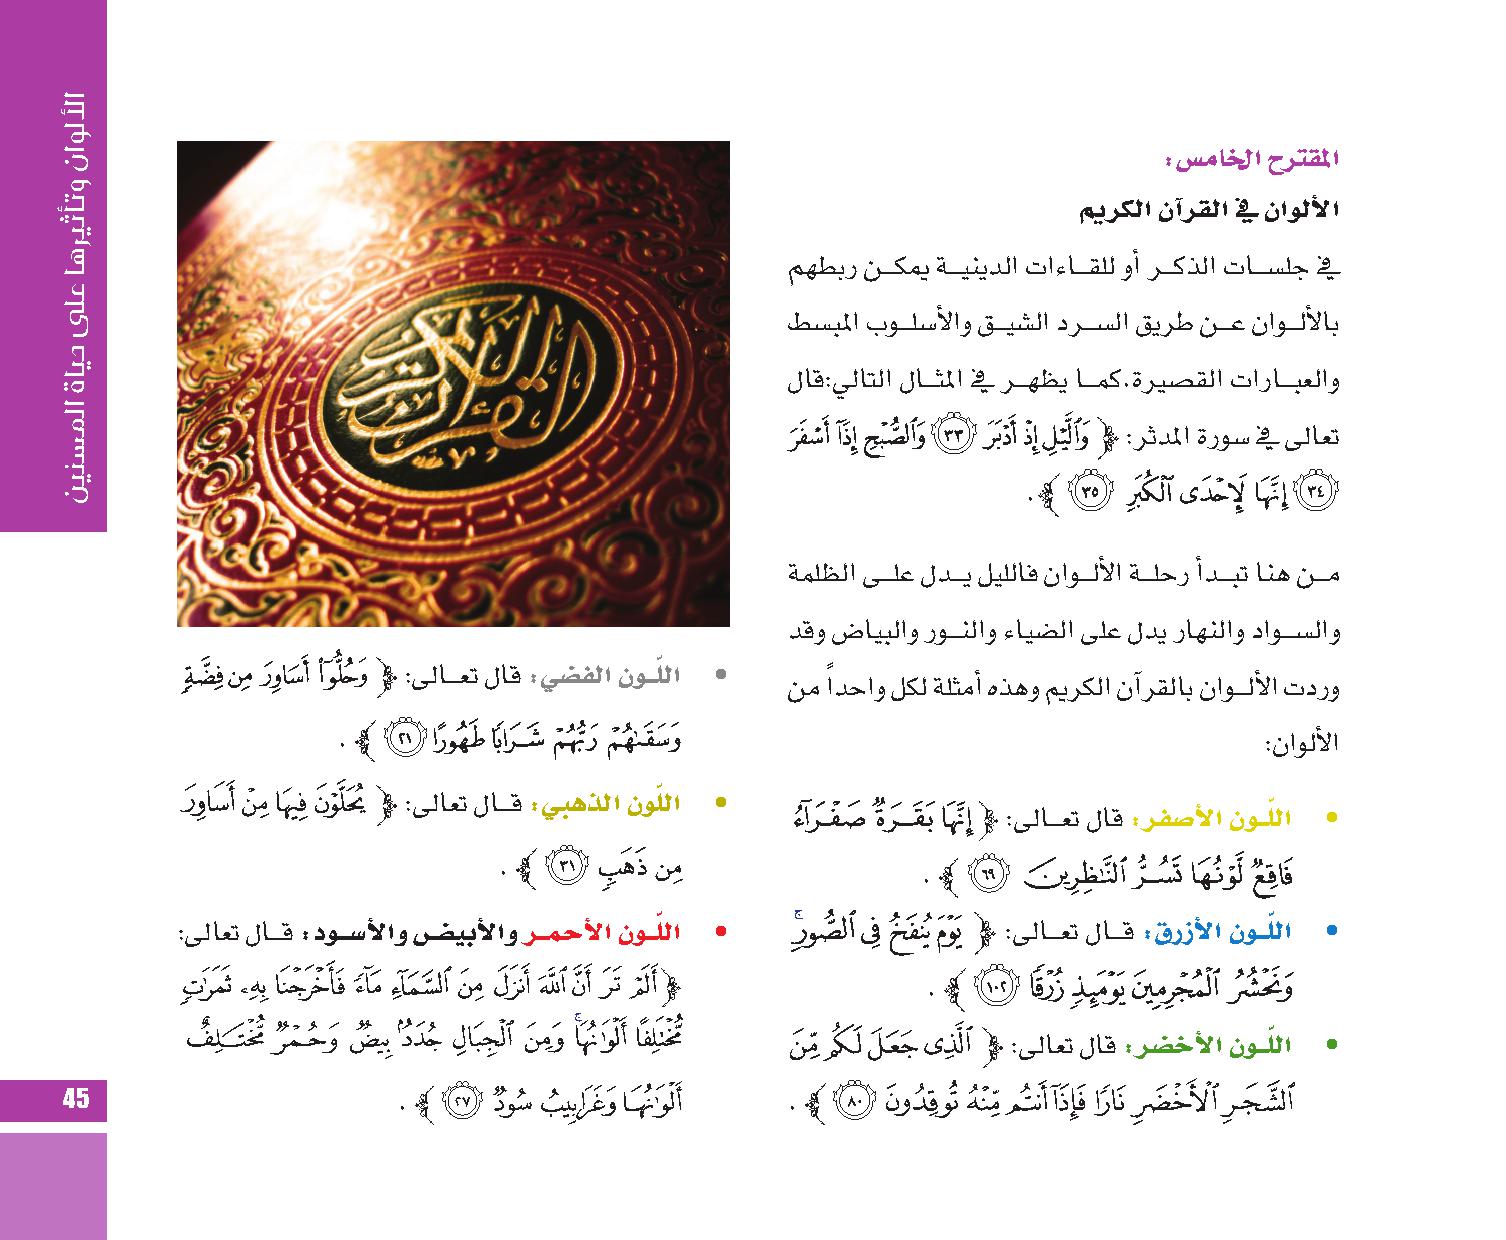 الألوان وتأثيرها على حياة المسنين
المقترح الخامس:
الألوان في القرآن الكريم
في جلسات الذكر أو للقاءات الدينية يمكن ربطهم
بالألوان عن طريق السرد الشيق والأسلوب المبسط
والعبارات القصيرة.كما يظهر في المثال التالي:قال
تعالى في سورة المدثر: ﴿ وَٱلَّيْلِ إِذْ أَدْبَرَ ٣٣ وَٱلصُّبْحِ إِذَآ أَسْفَرَ
٣٤ إِنَّهَا لَإِحْدَى ٱلْكُبَرِ ٣٥ ﴾.
من هنا تبدأ رحلة الألوان فالليل يدل على الظلمة
والسواد والنهار يدل على الضياء والنور والبياض وقد
وردت الألوان بالقرآن الكريم وهذه أمثلة لكل واحداً من
الألوان:
• اللّون الأصفر: قال تعالى: ﴿ إِنَّهَا بَقَرَةٌ صَفْرَآءُ
فَاقِعٌ لَّوْنُهَا تَسُرُّ ٱلنَّٰظِرِينَ ٦٩ ﴾ .
• اللّون الأزرق: قال تعالى: ﴿ يَوْمَ يُنفَخُ فِى ٱلصُّورِ ۚ
وَنَحْشُرُ ٱلْمُجْرِمِينَ يَوْمَئِذٍ زُرْقًا ١٠٢ ﴾ .
• اللّون الأخضر: قال تعالى: ﴿ ٱلَّذِى جَعَلَ لَكُم مِّنَ
ٱلشَّجَرِ ٱلْأَخْضَرِ نَارًا فَإِذَآ أَنتُم مِّنْهُ تُوقِدُونَ ٨٠ ﴾ .
القرآن الكريم
• اللّون الفضي: قال تعالى: ﴿ وَحُلُّوٓا۟ أَسَاوِرَ مِن فِضَّةٍ
وَسَقَىٰهُمْ رَبُّهُمْ شَرَابًا طَهُورًا ٢١ ﴾ .
• اللّون الذهبي: قال تعالى: ﴿ يُحَلَّوْنَ فِيهَا مِنْ أَسَاوِرَ
مِن ذَهَبٍ ٣١ ﴾ .
• اللّون الأحمر والأبيض والأسود: قال تعالى:
﴿ أَلَمْ تَرَ أَنَّ ٱللَّهَ أَنزَلَ مِنَ ٱلسَّمَآءِ مَآءً فَأَخْرَجْنَا بِهِۦ ثَمَرَٰتٍ
مُّخْتَلِفًا أَلْوَٰنُهَا ۚ وَمِنَ ٱلْجِبَالِ جُدَدٌۢ بِيضٌ وَحُمْرٌ مُّخْتَلِفٌ
أَلْوَٰنُهَا وَغَرَابِيبُ سُودٌ ٢٧ ﴾ .
45